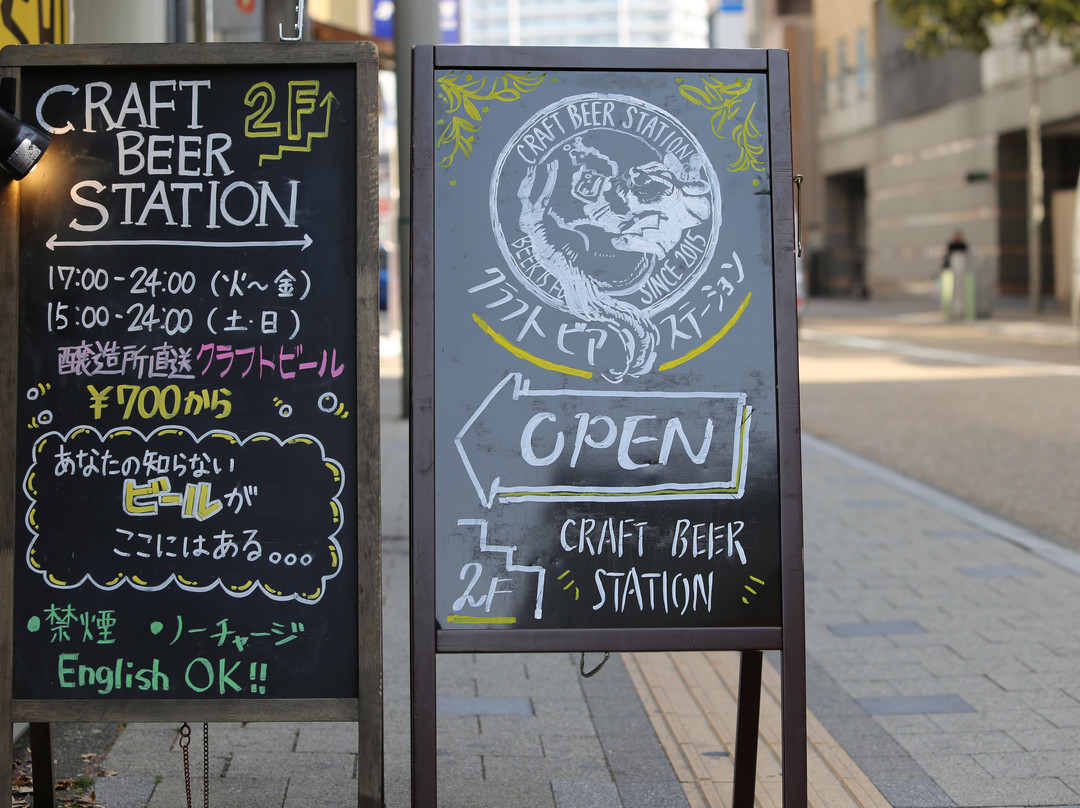 CRAFT
BEER
STATION
2F
17:00-24:00 (火～金)
15:00-24:00 (土・日)
醸造所直送クラフトビール
¥700から
あなたの知らない
ビールが
ここにはある...
・禁煙 ・ノーチャージ
English OK!!
CRAFT BEER STATION
SINCE 2015
クラフトビアステーション
OPEN
2F
CRAFT BEER
STATION